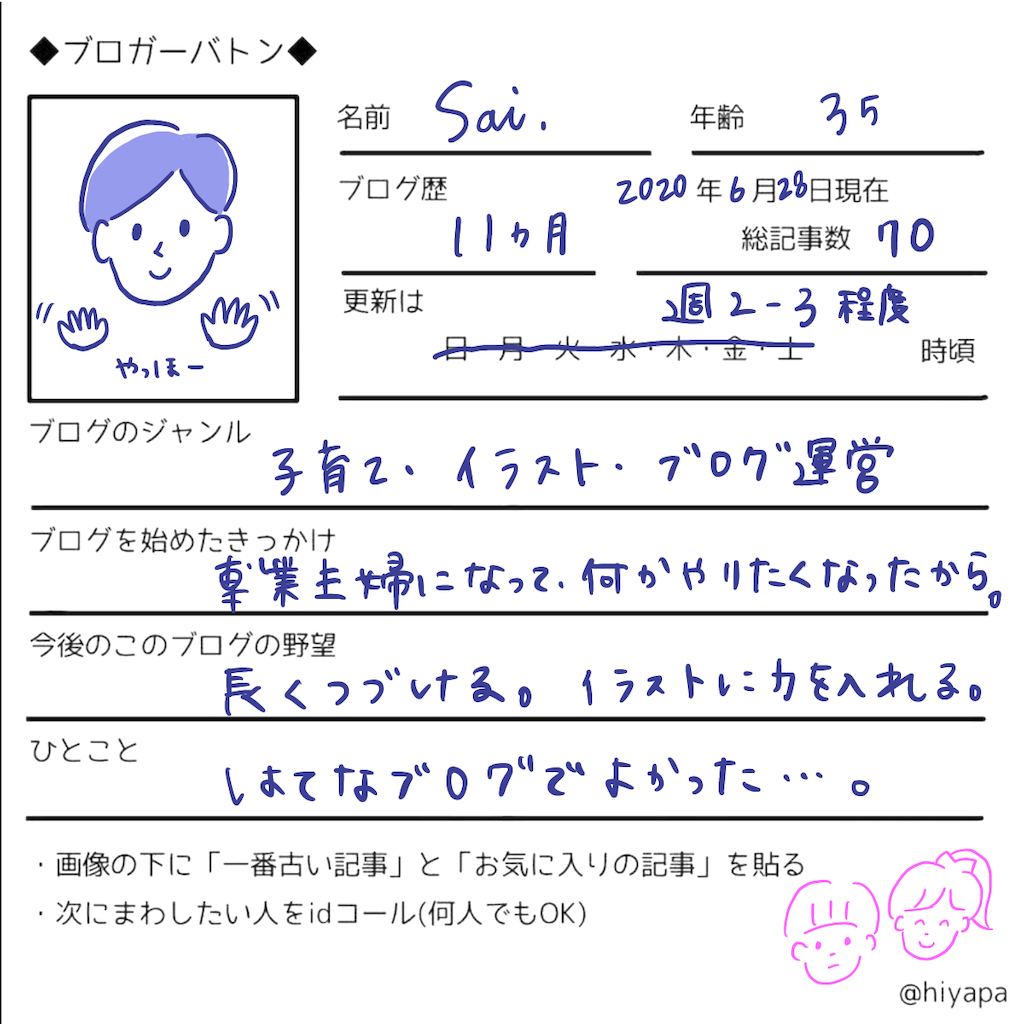 ◆ブロガーバトン◆
名前 Sai. 年齢 35
ブログ歴 11ヵ月
2020年6月28日現在
総記事数 70
更新は 週2-3程度
日・月・火・水・木・金・土 時頃
やっほー
ブログのジャンル
子育て・イラスト・ブログ運営
ブログを始めたきっかけ
専業主婦になって、何かやりたくなったから。
今後のこのブログの野望
長くつづける。イラストに力を入れる。
ひとこと
はてなブログでよかった…。
・画像の下に「一番古い記事」と「お気に入りの記事」を貼る
・次にまわしたい人をidコール(何人でもOK)
@hiyapa